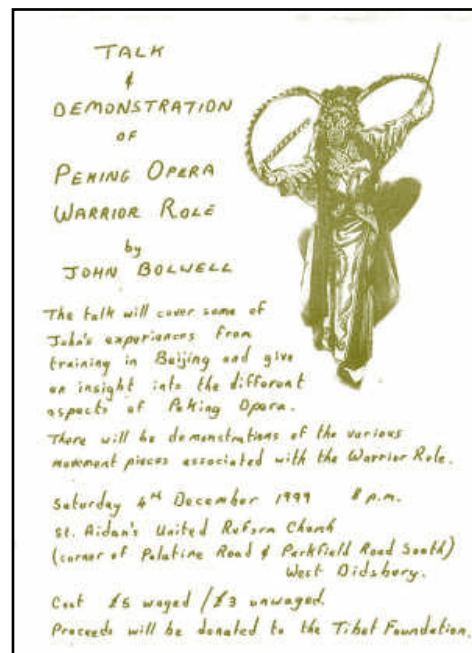 TALK
&
DEMONSTRATION
OF
PEKING OPERA
WARRIOR ROLE
by
JOHN BOLWELL
The talk will cover some of
John's experiences from
training in Beijing and give
an insight into the different
aspects of Peking Opera.
There will be demonstrations of the various
movement pieces associated with the Warrior Role.
Saturday 4th December 1999 8 p.m.
St. Aidan's United Reform Church
(corner of Palatine Road & Parkfield Road South)
West Didsbury.
Cost £5 waged / £3 unwaged.
Proceeds will be donated to the Tibet Foundation.